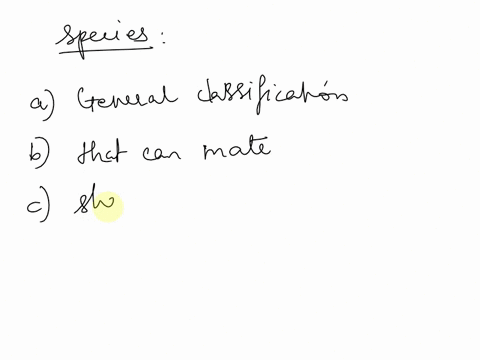 species:
a) General classification
b) that can mate
c) sho